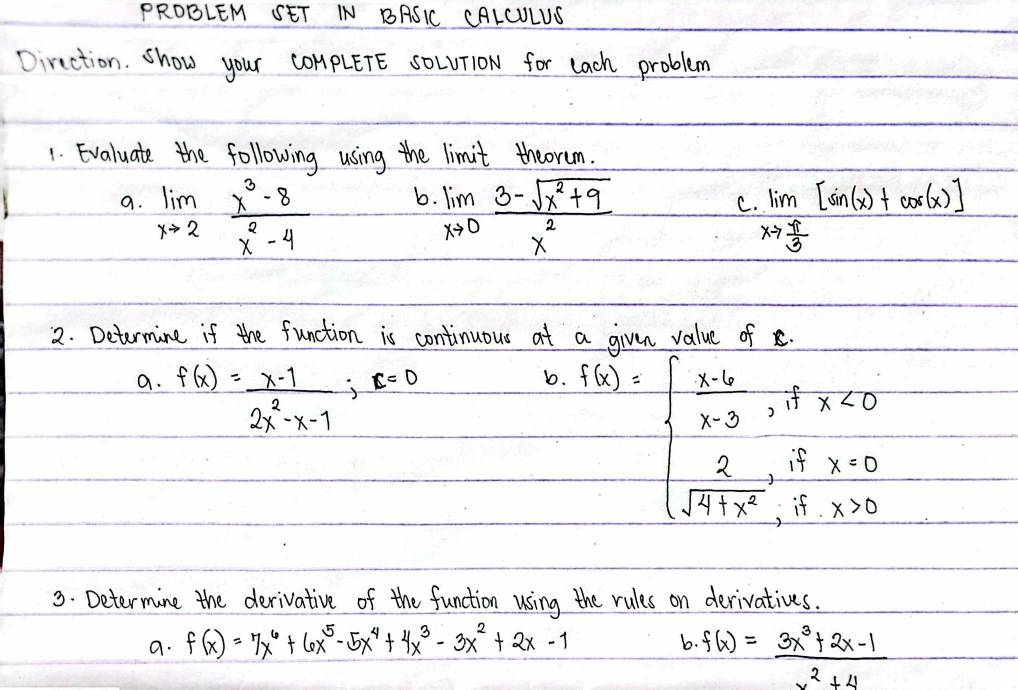 PROBLEM SET IN BASIC CALCULUS
Direction. Show your COMPLETE SOLUTION for each problem
1. Evaluate the following using the limit theorem.
a. lim x→2 (x³ - 8)/(x² - 4) b. lim x→0 (3 - √(x² + 9))/x² c. lim x→π/3 [sin(x) + cos(x)]
2. Determine if the function is continuous at a given value of c.
a. f(x) = (x-1)/(2x² - x - 1) ; c = 0 b. f(x) = { (x-6)/(x-3) , if x < 0
2 , if x = 0
√(4 + x²) ; if x > 0
3. Determine the derivative of the function using the rules on derivatives.
a. f(x) = 7x⁶ + 6x⁵ - 5x⁴ + 4x³ - 3x² + 2x - 1 b. f(x) = (3x³ + 2x - 1)/(x² + 4)